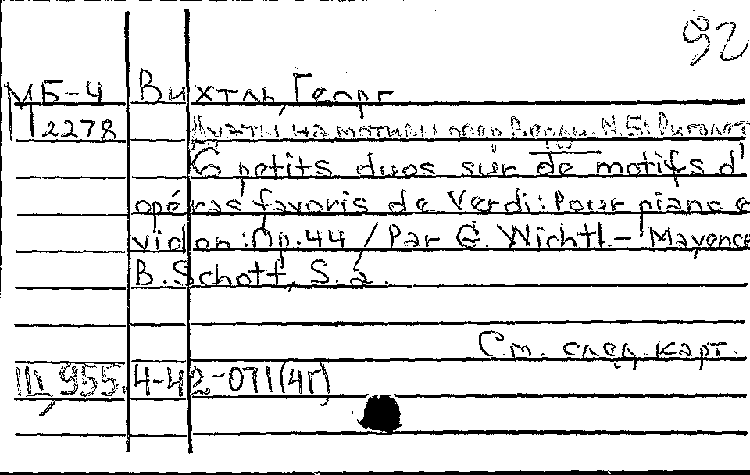 92
МБ-4 Вихтль, Георг
П 2278 Дуэты на мотивы опер Верди. N.5: Риголет
6 petits duos sur de motifs d'
opéras favoris de Verdi: Pour piano e
violon: Op. 44 / Par G. Wichtl. - Mayence
B. Schott, S. a.
См. след. карт.
955. 4-42-071(4г)